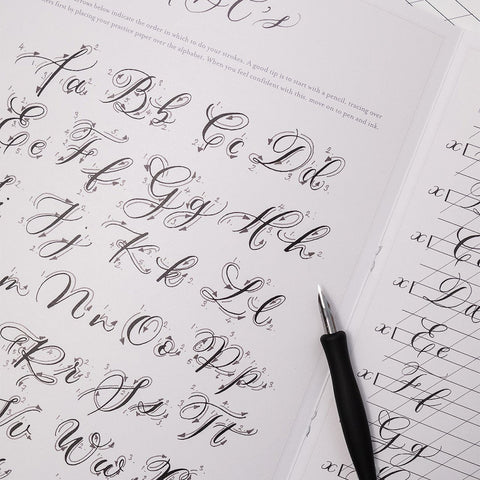 C's
arrows below indicate the order in which to do your strokes. A good tip is to start with a pencil, tracing over
first by placing your practice paper over the alphabet. When you feel confident with this, move on to pen and ink.
Aa Bb Cc Dd
Ee Ff Gg Hh
Jj Kk Ll
m Nn Oo Pp
Rr Ss Tt
Vv Ww
x
x
Cc
x
Dd
x
Ee
x
Ff
Gg
x